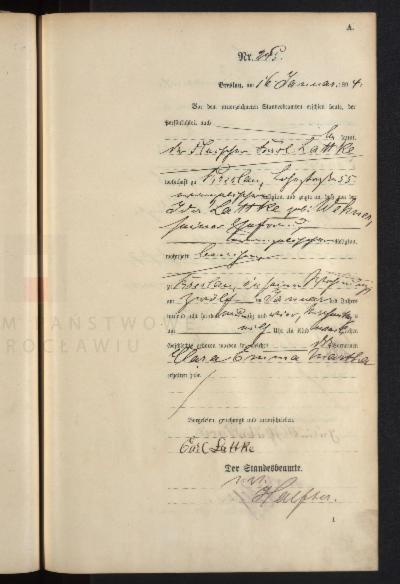 A.
Nr. 245.
Breslau, am 16 Januar 1904.
Vor dem unterzeichneten Standesbeamten erschien heute, der
Persönlichkeit nach
be kannt,
der Fleischer Carl Lattke
wohnhaft zu Breslau, Lohestraße 55
evangelischer Religion, und zeigte an, daß von der
Ida Lattke geb. Wehner,
seiner Ehefrau,
evangelischer Religion,
wohnhaft bei ihm
zu Breslau, in seiner Wohnung
am zwölften Januar des Jahres
tausend neunhundert vier, Nachmittags
um Uhr ein Kind weiblichen
Geschlechts geboren worden sei, welches die Vornamen
Clara Emma Martha
erhalten habe.
Vorgelesen, genehmigt und unterschrieben
Carl Lattke
Der Standesbeamte.
1
M PAŃSTWOWE
ROCŁAWIU